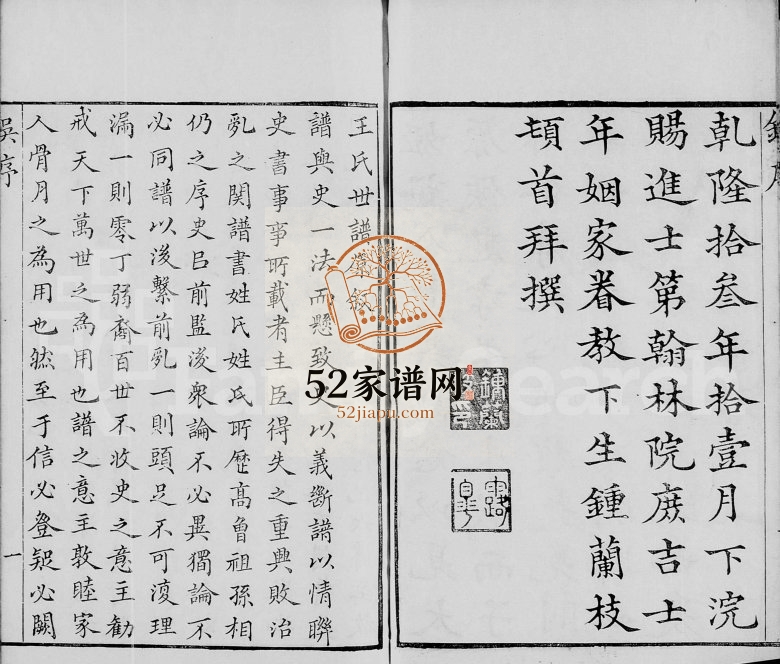 乹隆拾叁年拾壹月下浣
賜進士第翰林院庶吉士
年姻家眷教下生鍾蘭枝
頓首拜撰
王氏世譜
譜與史一法而懸致史以義斷譜以情聯
史書事事所載者主臣得失之重興敗治
亂之関譜書姓氏姓氏所歷高曾祖孫相
仍之序史㠯前監後衆論不必異獨論不
必同譜以後繫前亂一則頭足不可復理
漏一則零丁弱裔百世不收史之意主勸
戒天下萬世之為用也譜之意主敦睦家
人骨月之為用也然至于信必登疑必闕
吳序
一
52家谱网
52jiapu.com